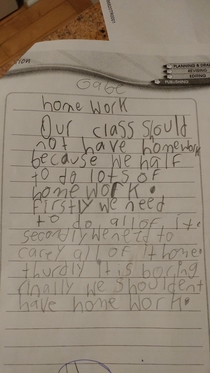 PLANNING & DRA
REVISING
EDITING
PUBLISHING
Gabe
home work
Our class should
not have homework
because we half
to do lots of
home work.
firstly we need
to do all of it.
secondly we ned to
carey all of it home.
thurdly it is boring
finally we shouldent
have home work.